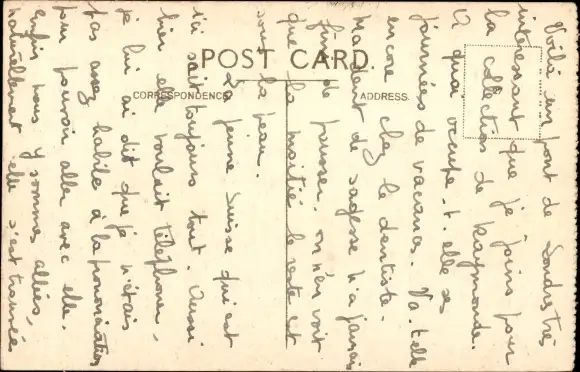 POST CARD.
CORRESPONDENCE
ADDRESS.
Voilà un pont de Londres très
intéressant que je joins pour
la collection de Raymonde.
A quoi occupe-t-elle ses
journées de vacances. Va-t-elle
encore chez le dentiste.
Ma dent de sagesse n'a jamais
fini de pousser, on n'en voit
que la moitié le reste est
sous la peau.
La jeune Suisse qui est
ici sait toujours tout. Aussi
hier elle voulait téléphoner,
je lui ai dit que je n'étais
pas assez habile à la prononciation
pour pouvoir aller avec elle.
enfin nous y sommes allées,
naturellement elle s'est